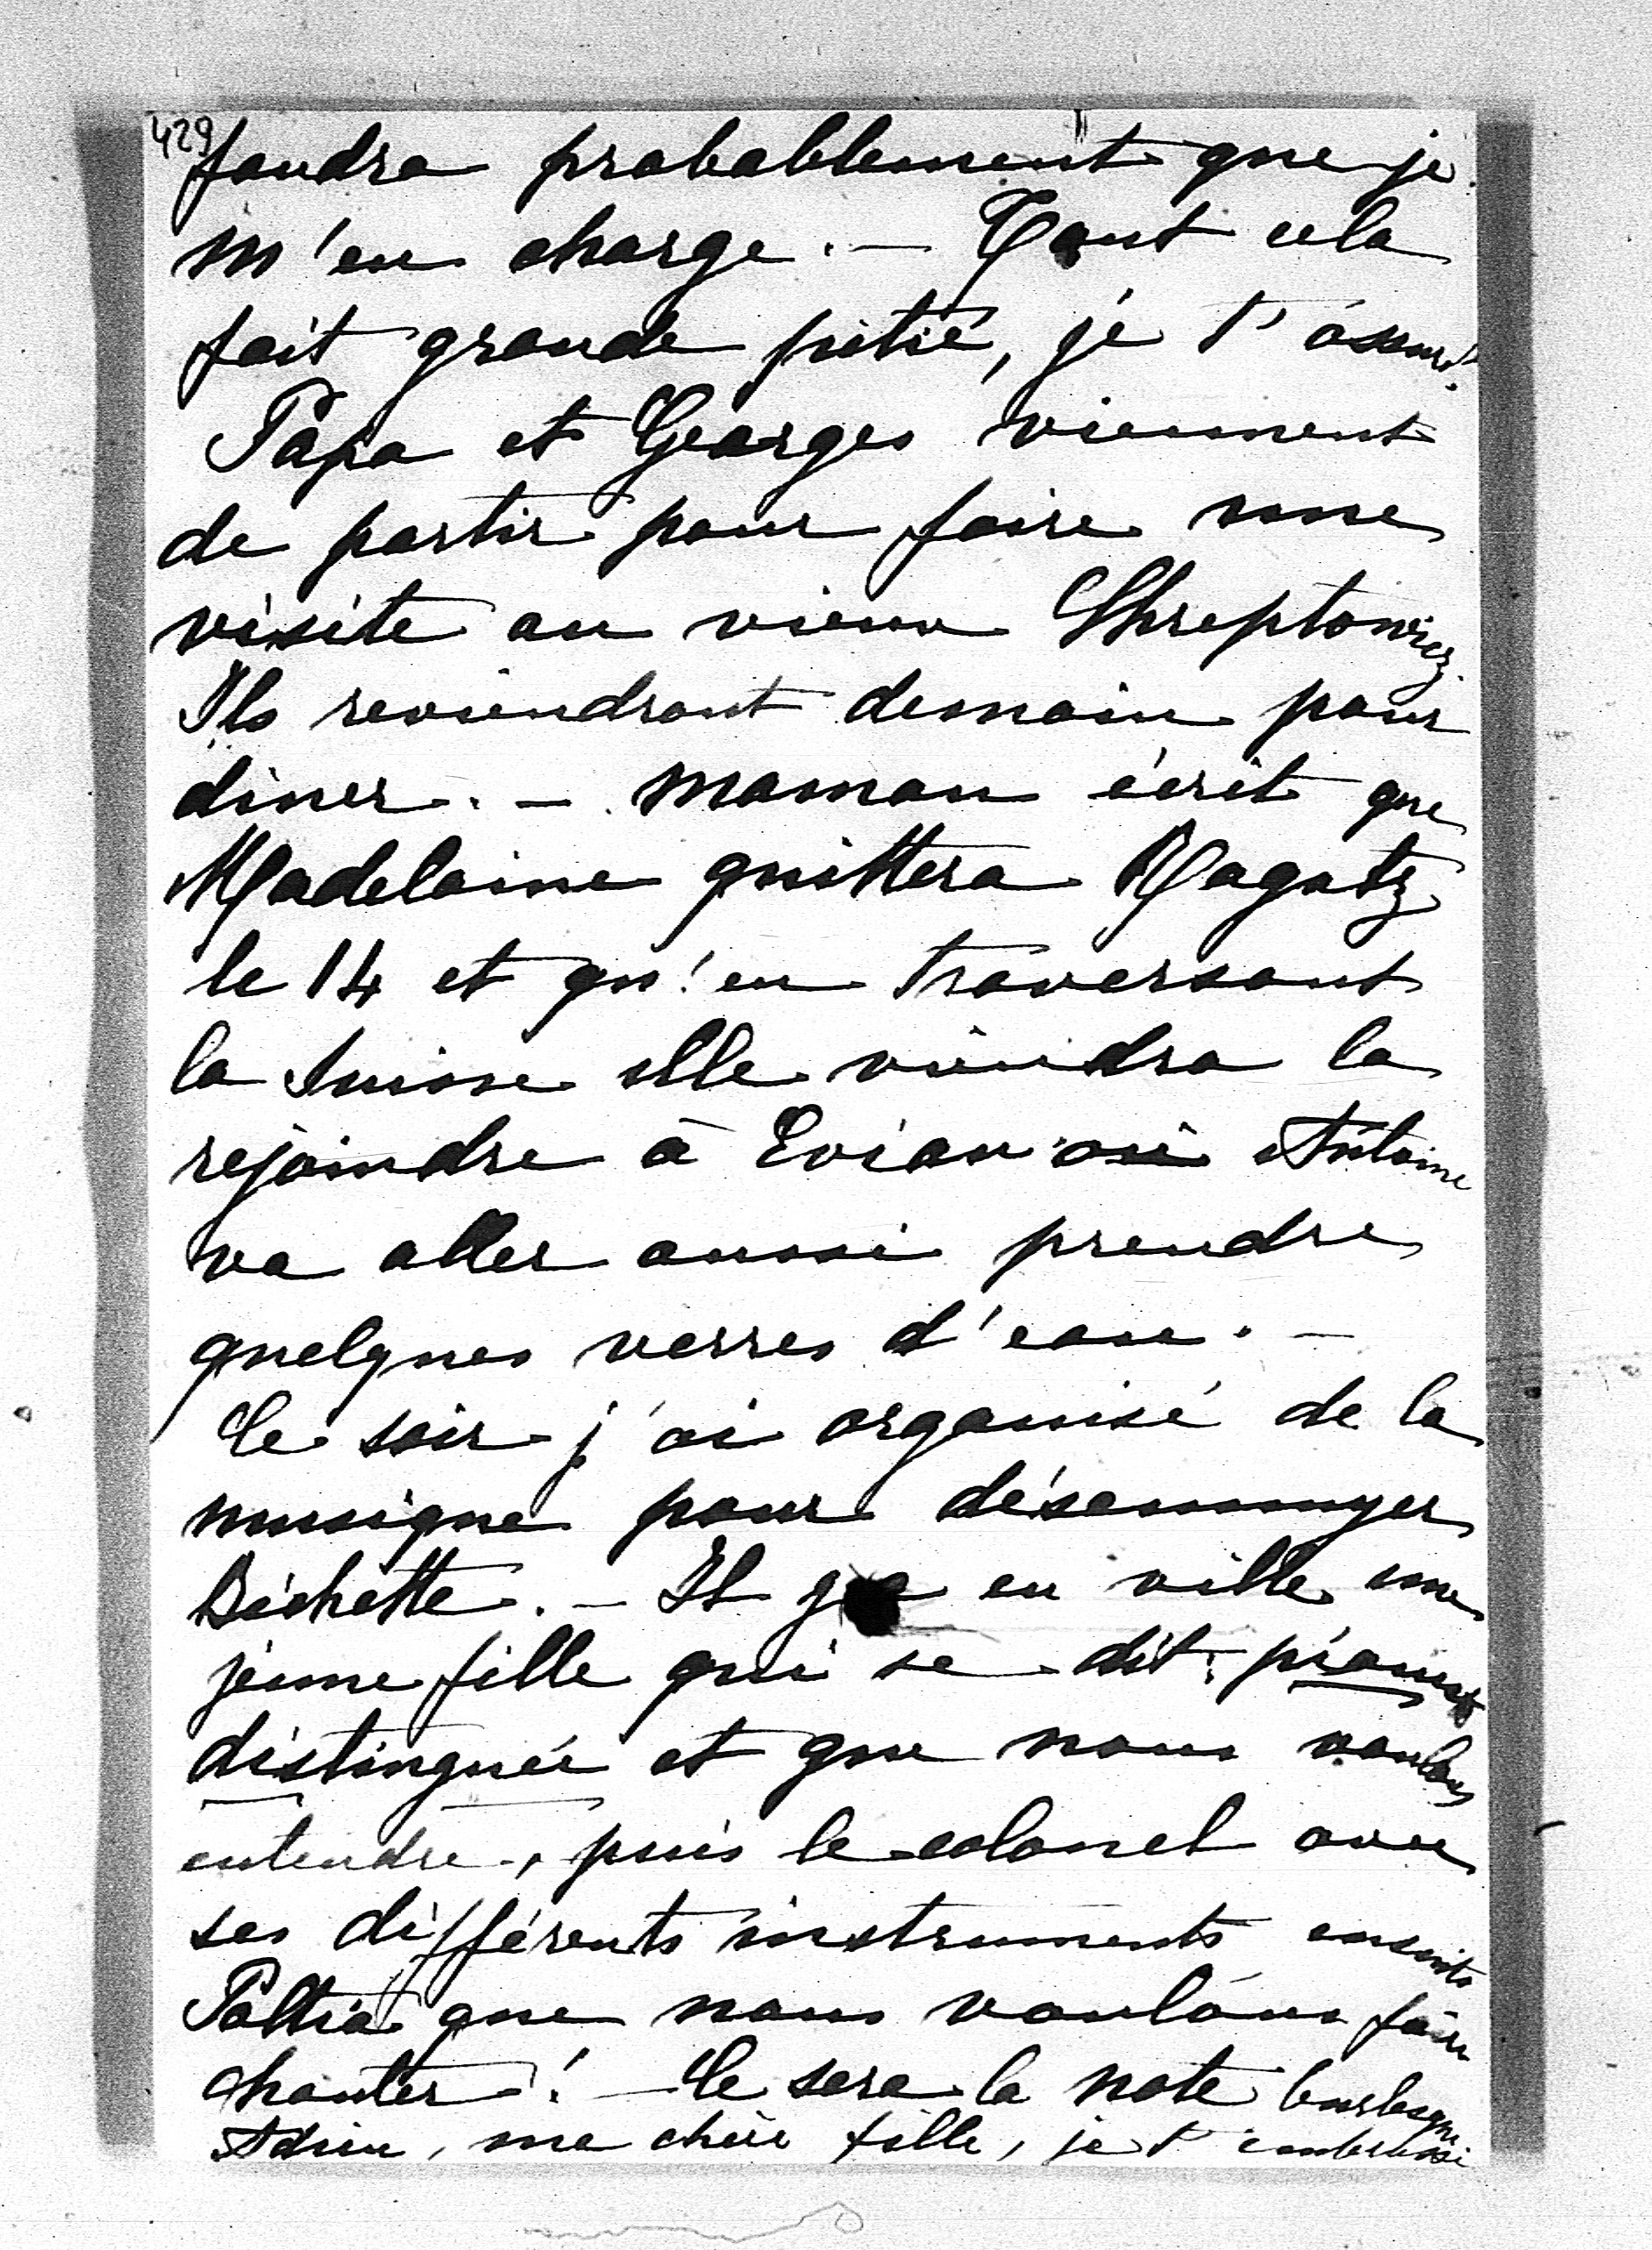 429
faudra probablement que je
m'en charge. — Tout cela
fait grande pitié, je t'assure!
Papa et Georges viennent
de partir pour faire une
visite au vieux Chreptowicz.
Ils reviendront demain pour
diner. — Maman écrit que
Madelaine quittera Ragatz
le 14 et qu'en traversant
la Suisse elle viendra la
rejoindre à Evian où Antoine
va aller aussi prendre
quelques verres d'eau. —
Ce soir j'ai organisé de la
musique pour désennuyer
Bichette. — Il y a en ville une
jeune fille qui se dit pianiste
distinguée et que nous voulons
entendre, puis le colonel avec
ses différents instruments ensuite
que nous voulons faire
chanter! — Ce sera la note burlesque
Adieu, ma chère fille, je t'embrasse